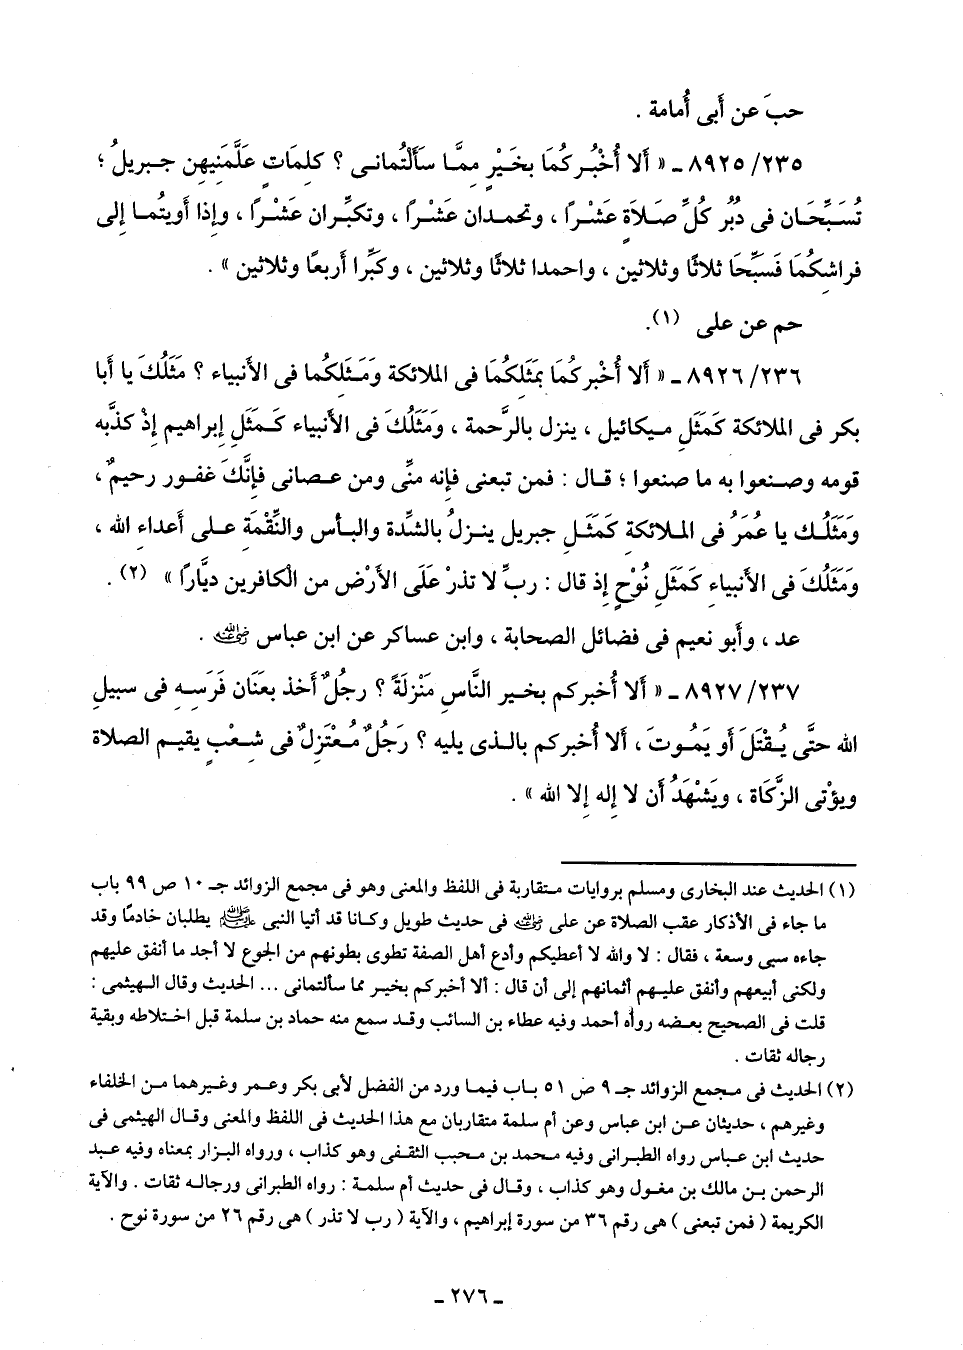 حبَ عن أَبى أُمامة .
٢٣٥/ ٨٩٢٥ ـ « أَلا أُخْبُركُمَا بخَيْرٍ ممَّا سَأَلْتُمانى ؟ كلمَات عَلَّمَنِيهِن جبريلُ ؛
تُسَبِّحَان فى دُبُر كُلِّ صَلاَةٍ عَشْرًا ، وتحمدان عَشْرًا ، وتكبِّران عَشْرًا ، وإذا أَويتُما إلى
فراشِكُمَا فَسَبِّحَا ثلاثًا وثلاثين ، واحمدا ثلاثًا وثلاثين ، وكبِّرا أَربعًا وثلاثين » .
حم عن على (١).
٢٣٦/ ٨٩٢٦ ـ « أَلا أُخْبركُمَا بمَثَلِكُمَا فى الملائكة وَمَثَلِكُما فى الأَنبياء ؟ مثَلُكَ يا أَبا
بكر فى الملائكة كَمَثَلِ ميكائيل ، ينزل بالرَّحمة ، وَمَثَلُكَ فى الأَنبياء كَمثَلِ إبراهيم إذْ كذَّبه
قومه وصنعوا به ما صنعوا ؛ قال : فمن تبعنى فإنه منِّى ومن عصانى فإنَّكَ غفور رحيمٌ ،
وَمَثَلُك يا عُمَرُ فى الملائكة كَمَثَلِ جبريل ينزلُ بالشِّدة والبأس والنِّقْمَة على أَعداء الله ،
وَمَثَلُكَ فى الأَنبياءِ كَمَثَلِ نُوْحٍ إذ قال : ربِّ لا تذرْ عَلَى الأَرْض من الكافرين ديَّارًا » (٢) .
عد ، وأَبو نعيم فى فضائل الصحابة ، وابن عساكر عن ابن عباس رضي الله عنه .
٢٣٧/ ٨٩٢٧ ـ « أَلا أُخبركم بخير النَّاسِ مَنْزِلَةً ؟ رجلٌ أَخذ بعَنَان فَرَسِهِ فى سبيلِ
الله حتَّى يُقْتَلَ أَو يَمُوتَ ، أَلا أُخبركم بالذى يليه ؟ رَجُلٌ مُعْتَزِلٌ فى شِعْبٍ يقيم الصلاة
ويؤتى الزَّكَاة ، ويَشْهَدُ أَن لا إله إلا الله » .
(١) الحديث عند البخارى ومسلم بروايات متقاربة فى اللفظ والمعنى وهو فى مجمع الزوائد جـ ١٠ ص ٩٩ باب
ما جاء فى الأذكار عقب الصلاة عن على رضي الله عنه فى حديث طويل وكانا قد أتيا النبى ﷺ يطلبان خادمًا وقد
جاءه سبى وسعة ، فقال : لا والله لا أعطيكم وأدع أهل الصفة تطوى بطونهم من الجوع لا أجد ما أنفق عليهم
ولكنى أبيعهم وأنفق عليهم أثمانهم إلى أن قال : ألا أخبركم بخير مما سألتمانى ... الحديث وقال الهيثمى :
قلت فى الصحيح بعضه رواه أحمد وفيه عطاء بن السائب وقد سمع منه حماد بن سلمة قبل اختلاطه وبقية
رجاله ثقات .
(٢) الحديث فى مجمع الزوائد جـ ٩ ص ٥١ باب فيما ورد من الفضل لأبى بكر وعمر وغيرهما من الخلفاء
وغيرهم ، حديثان عن ابن عباس وعن أم سلمة متقاربان مع هذا الحديث فى اللفظ والمعنى وقال الهيثمى فى
حديث ابن عباس رواه الطبرانى وفيه محمد بن محبب الثقفى وهو كذاب ، ورواه البزار بمعناه وفيه عبد
الرحمن بن مالك بن مغول وهو كذاب ، وقال فى حديث أم سلمة : رواه الطبرانى ورجاله ثقات . والآية
الكريمة ( فمن تبعنى ) هى رقم ٣٦ من سورة إبراهيم ، والآية ( رب لا تذر ) هى رقم ٢٦ من سورة نوح .
ـ ٢٧٦ ـ